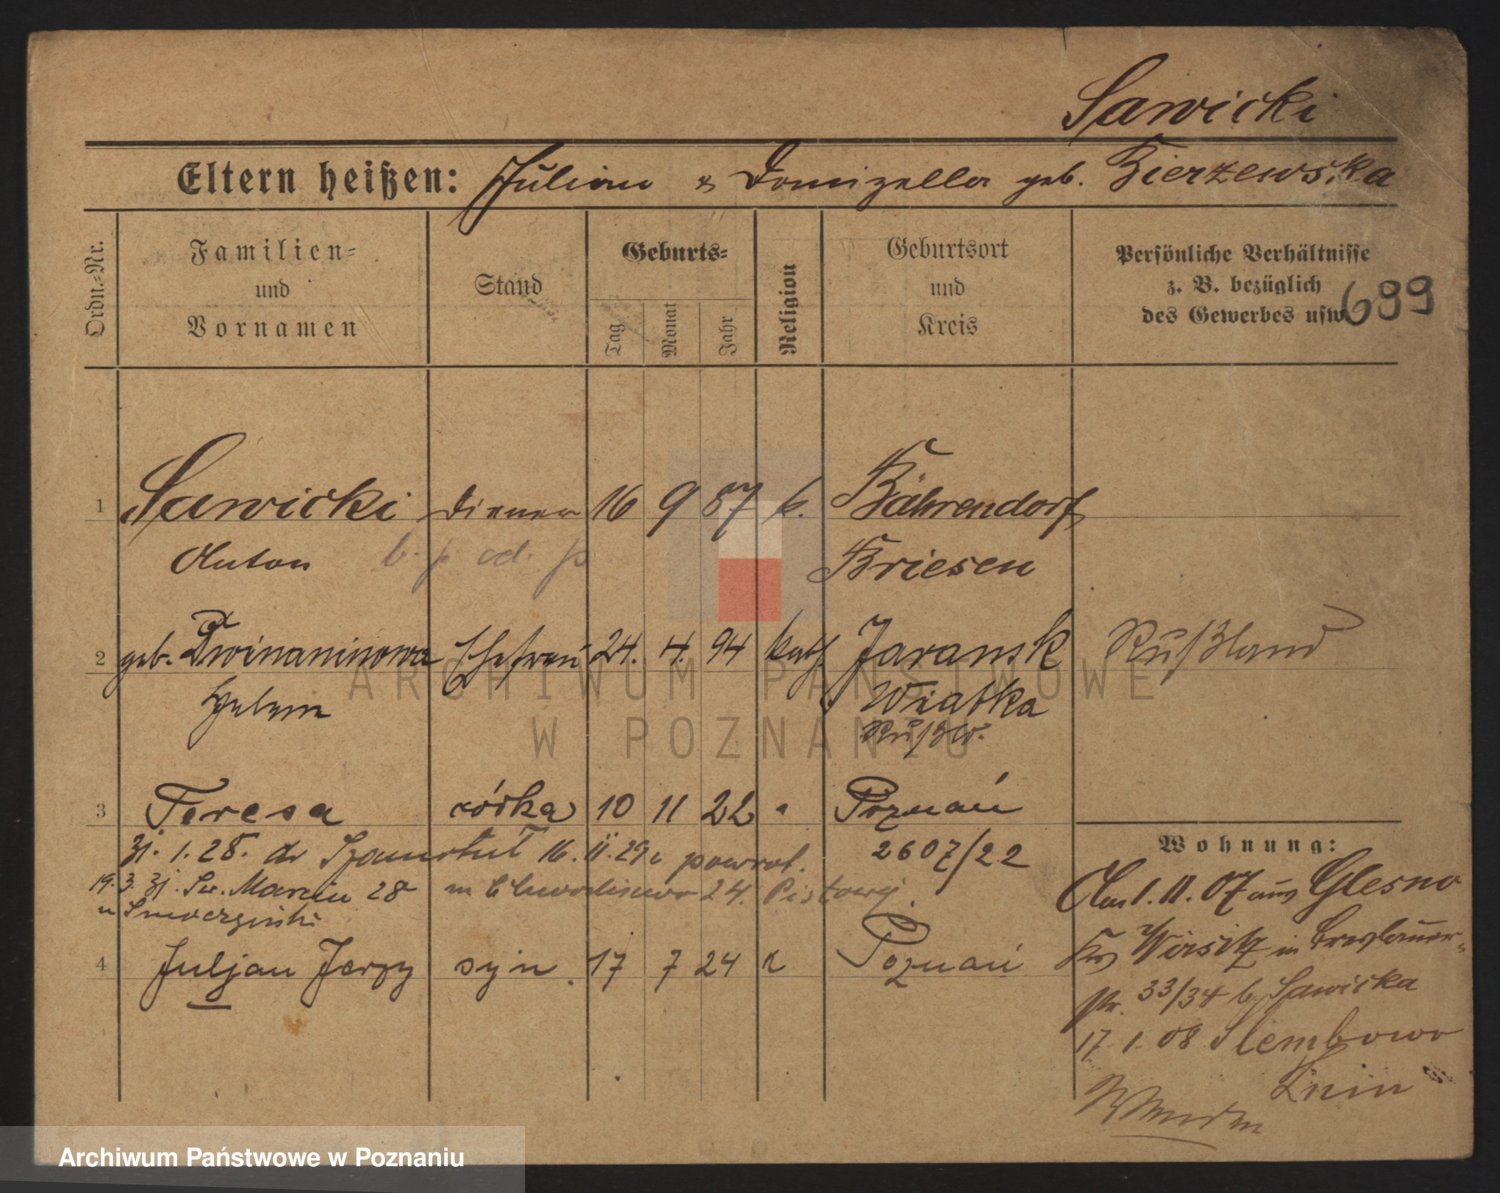 Sawicki
Eltern heißen: Julian & Domizella geb. Bierzewska
Ordn.-Nr.
Familien-
und
Vornamen
Stand
Geburts-
Tag
Monat
Jahr
Religion
Geburtsort
und
Kreis
Persönliche Verhältnisse
z. B. bezüglich
des Gewerbes usw.
699
1 Sawicki Diener 16 9 87 k. Bährendorf
Anton Briesen
2 geb. Dwinaninowa Ehefrau 24. 4. 94 kath Jaransk Rußland
Helene Wiatka
Rußld.
3 Teresa córka 10 11 22 " Poznań
zj. 1. 28. do 16. 11. 29 powrot. 2607/22
19. 3. zj. Św. Marcin 28 24.
4 Juljan Jerzy syn 17 7 24 Poznań
Wohnung:
Am 1. 11. 07 aus Glesno
Krs Wirsitz in Breslauer-
str. 33/34 b. Sawicka
17. 1. 08 Slembowo
Znin
ARCHIWUM PAŃSTWOWE
W POZNANIU
Archiwum Państwowe w Poznaniu